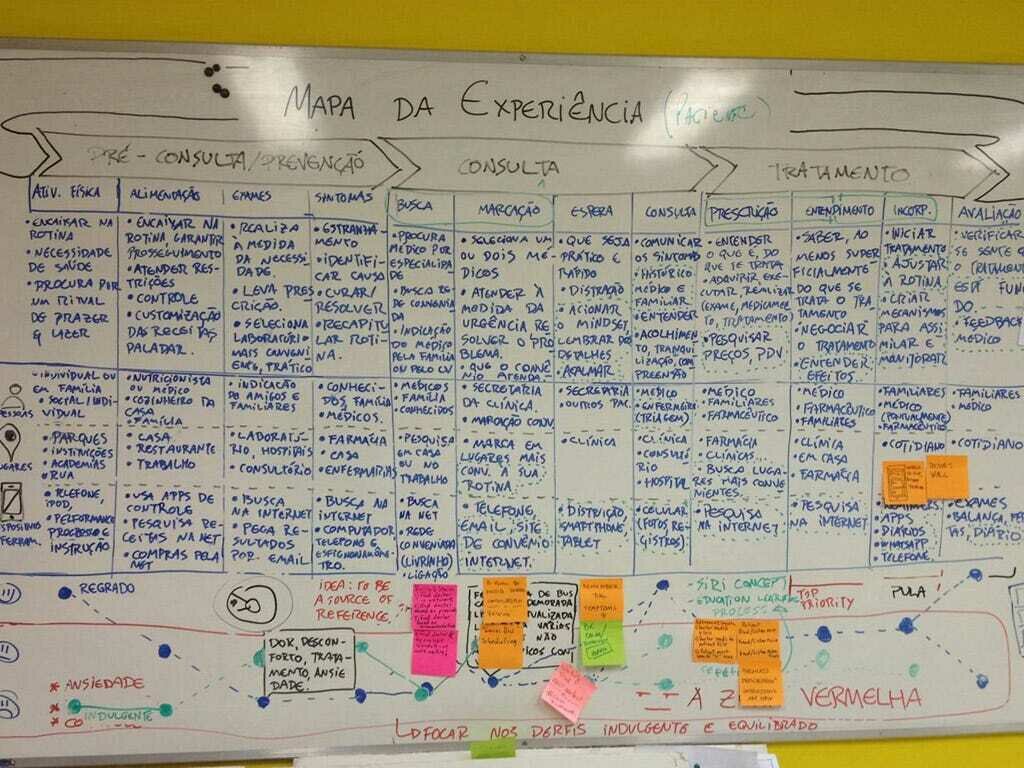 MAPA DA EXPERIÊNCIA (PACIENTE)
PRÉ - CONSULTA/PREVENÇÃO
CONSULTA
TRATAMENTO
ATIV. FÍSICA
• ENCAIXAR NA
ROTINA
• NECESSIDADE
DE SAÚDE
• PROCURA POR
UM RITUAL
DE PRAZER
& LAZER
ALIMENTAÇÃO
• ENCAIXAR NA
ROTINA, GARANTIR
PROSSEGUIMENTO
• ATENDER RES-
TRIÇÕES
• CONTROLE
• CUSTOMIZAÇÃO
DAS RECEITAS
PALADAR.
EXAMES
• REALIZA
À MEDIDA
DA NECESSI-
DADE.
• LEVA PRES
CRIÇÃO.
• SELECIONA
LABORATÓRIO
MAIS CONVENI
ENTE, PRÁTICO
SINTOMAS
• ESTRANHA-
MENTO
• IDENTIFI-
CAR CAUSA
• CURAR/
RESOLVER
• RECAPITU
LAR ROTI-
NA.
BUSCA
• PROCURA
MÉDICO POR
ESPECIALIDA-
DE
• BUSCA RE-
DE CONVENIA
DA
• INDICAÇÃO
DO MÉDICO
PELA FAMÍLIA
OU PELO LV
MARCAÇÃO
• SELECIONA UM
OU DOIS MÉ-
DICOS
• ATENDER À
MEDIDA DA
URGÊNCIA RE
SOLVER O PRO
BLEMA.
• QUE O CONVÊ
NIO ATENDA.
ESPERA
• QUE SEJA
PRÁTICO E
RÁPIDO
• DISTRAÇÃO
• ACIONAR O
MINDSET,
LEMBRAR DOS
DETALHES
• ACALMAR.
CONSULTA
• COMUNICAR
OS SINTOMAS
• HISTÓRICO
MÉDICO E
FAMILIAR.
• ENTENDER
• ACOLHIMEN
TO, TRANQUI
LIZAÇÃO, COM
PREENSÃO
PRESCRIÇÃO
• ENTENDER
O QUE É, DO
QUE SE TRATA
• ADQUIRIR, EXE
CUTAR, REALIZAR
(EXAME, MEDICAMEN
TO, TRATAMENTO)
• PESQUISAR
PREÇOS, PDV.
ENTENDIMENTO
• SABER, AO
MENOS SUPER
FICIALMENTE
DO QUE SE
TRATA O TRA
TAMENTO
• NEGOCIAR
O TRATAMENTO
• ENTENDER
EFEITOS.
INCORP.
• INICIAR
TRATAMENTO
• AJUSTAR
À ROTINA.
• CRIAR
MECANISMOS
PARA ASSI
MILAR E
MONITORAR
AVALIAÇÃO
• VERIFICAR
SE SENTE
O TRATAMEN
ESTÁ FUNC
DO.
• FEEDBACK
MÉDICO
PESSOAS
• INDIVIDUAL OU
EM FAMÍLIA
• SOCIAL/INDI-
VIDUAL
• NUTRICIONISTA
OU MÉDICO
• COZINHEIRO DA
CASA
• FAMÍLIA
• INDICAÇÃO
DE AMIGOS E
FAMILIARES
• CONHECI-
DOS, FAMÍLIA
• MÉDICOS.
• MÉDICOS
• FAMÍLIA
• CONHECIDOS
• SECRETARIA
DA CLÍNICA.
• MARCAÇÃO CONV.
• SECRETÁRIA
• OUTROS PAC.
• MÉDICO
• ENFERMEIRA
(TRIAGEM)
• MÉDICO
• FAMILIARES
• FARMACÊUTICO
• MÉDICO
• FARMACÊUTICO
• FAMILIARES
• FAMILIARES
• MÉDICO
(PONTUALMENTE)
• FARMACÊUTICO
• FAMILIARES
• MÉDICO
LUGARES
• PARQUES
• INSTITUIÇÕES
• ACADEMIAS
• RUA
• CASA
• RESTAURANTE
• TRABALHO
• LABORATÓ-
RIO, HOSPITAIS
• CONSULTÓRIO
• FARMÁCIA
• CASA
• ENFERMARIAS
• PESQUISA
EM CASA
OU NO
TRABALHO
• MARCA EM
LUGARES MAIS
CONV. À SUA
ROTINA.
• CLÍNICA
• CLÍNICA
• CONSULTÓ
RIO
• HOSPITAL
• FARMÁCIA
• CLÍNICAS...
• BUSCO LUGA-
RES MAIS CONVE-
NIENTES.
• CLÍNICA
• EM CASA
• FARMÁCIA
• COTIDIANO
• COTIDIANO
DISPOSITIVOS
FERRAM.
• TELEFONE,
IPOD,
• PERFORMANCE
PROGRESSO E
INSTRUÇÃO
• USA APPS DE
CONTROLE
• PESQUISA RE-
CEITAS NA NET
• COMPRAS PELA
NET
• BUSCA
NA INTERNET
• PEGA RE-
SULTADOS
POR E-MAIL
• BUSCA NA
INTERNET
• COMPUTADOR
TELEFONE E
ESFIGNOMANÔME-
TRO.
• BUSCA
NA NET
• REDE
CONVENIADA
(LIVRINHO)
• LIGAÇÃO
• TELEFONE,
EMAIL, SITE
DE CONVÊNIO
INTERNET.
• DISTRAÇÃO,
SMARTPHONE,
TABLET
• CELULAR
(FOTOS RE-
GISTROS)
• PESQUISA
NA INTERNET.
• PESQUISA
NA INTERNET
• APPS
• DIÁRIOS
• WHATSAPP
• TELEFONE.
• EXAMES
BALANÇA, FER
TAS, DIÁRIO
REGRADO
IDEA: TO BE
A SOURCE OF
REFERENCE.
DOR, DESCON-
FORTO, TRATA-
MENTO, ANSIE
DADE.
REMEMBER
THE
SYMPTOMS
- SIRI CONCEPT
EDUCATION LEARNING
PROCESS
TOP
PRIORITY
PULA
* ANSIEDADE
* INDULGENTE
* CO
VERMELHA
FOCAR NOS PERFIS INDULGENTE E EQUILIBRADO